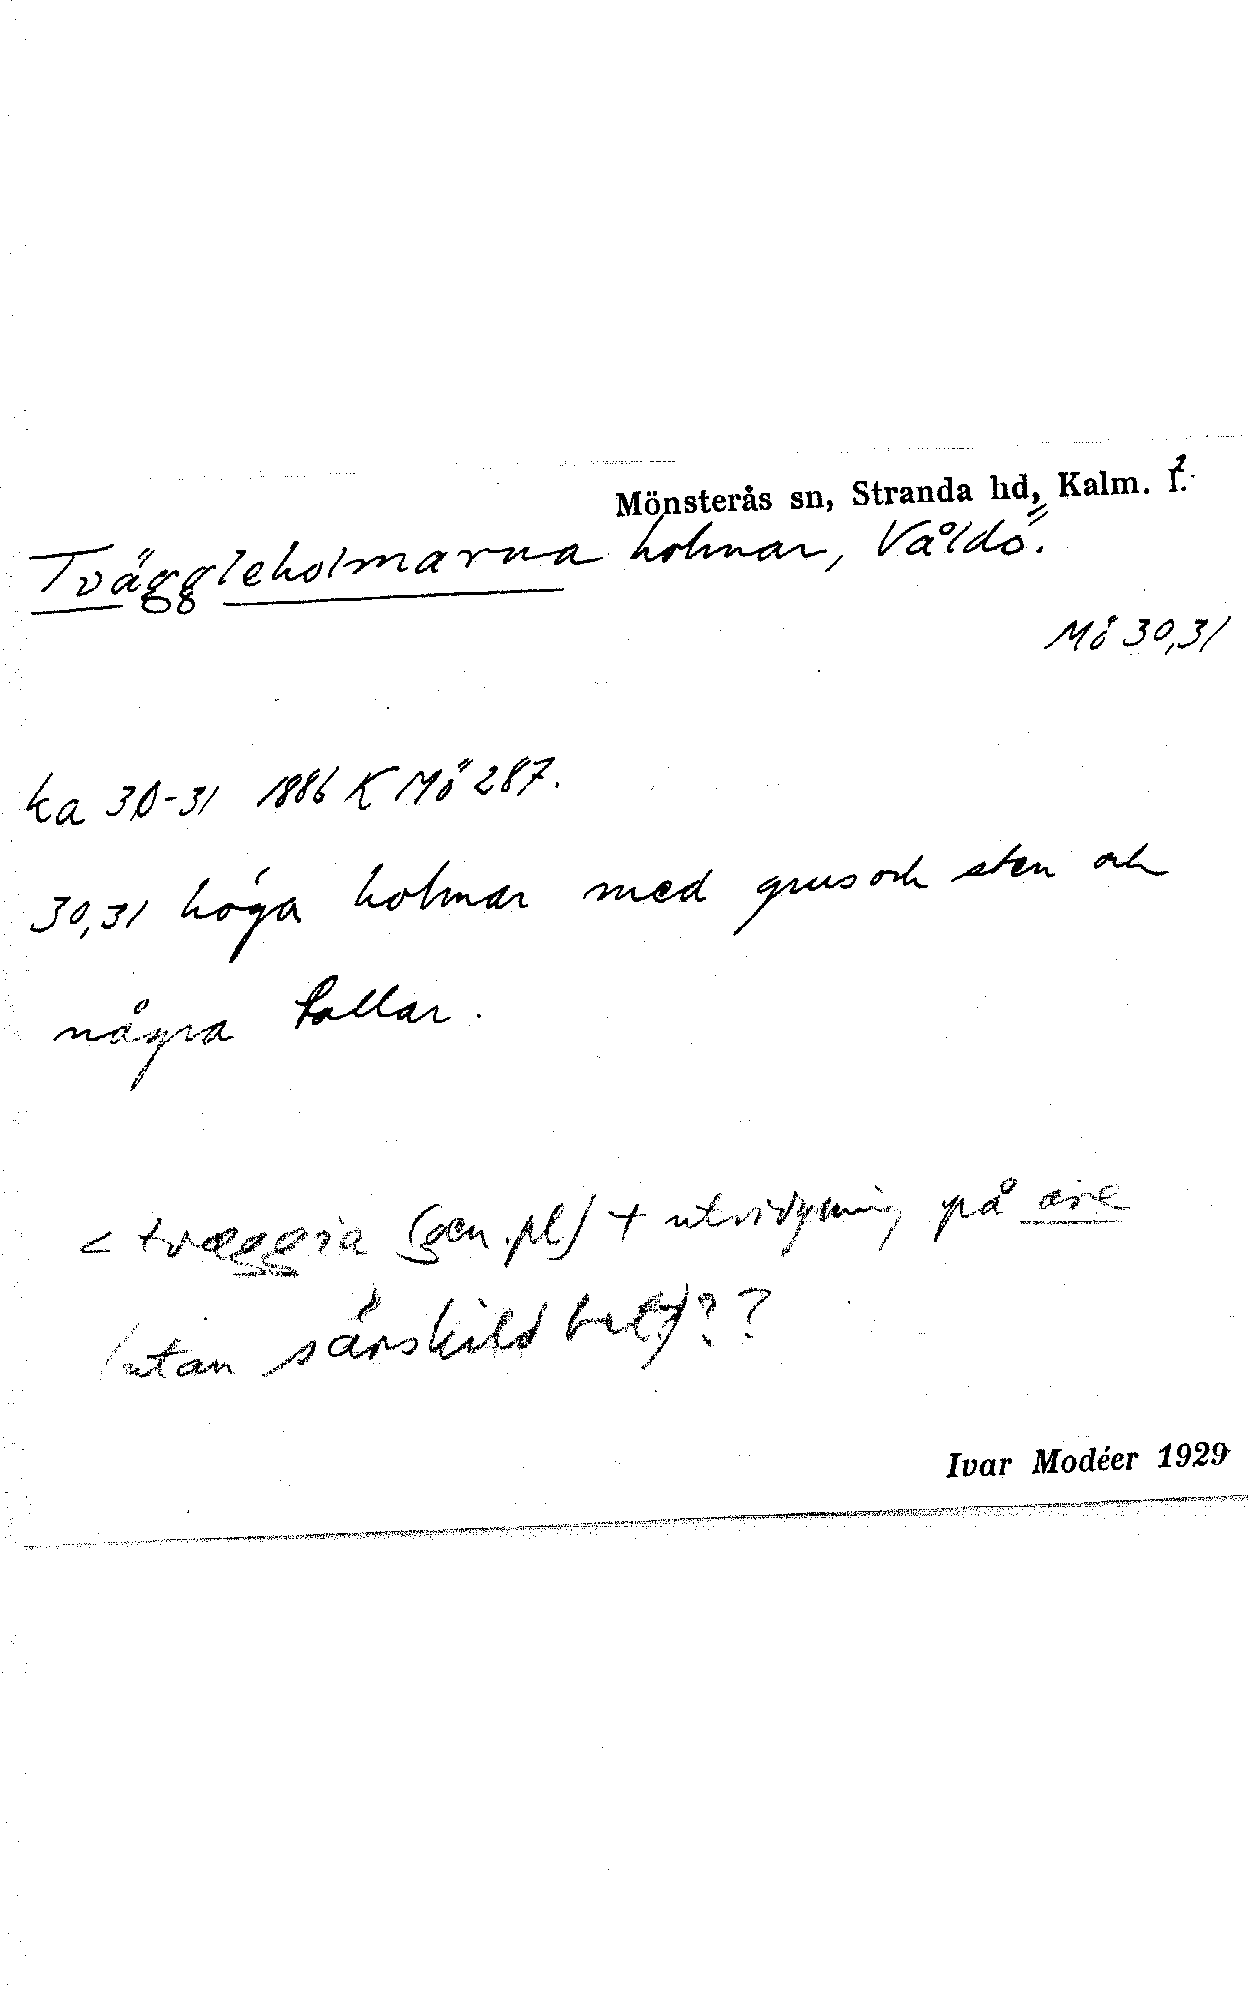 Mönsterås sn, Stranda hd, Kalm. l.
Tväggleholmarna holmar, Våldö.
Mö 30,31
ka 30-31 1886 K Mö 287.
30,31 höga holmar med grus och sten och
några tallar.
< tvæggia (gen.pl) + utvidgning på
(utan särskild bet)??
Ivar Modéer 1929